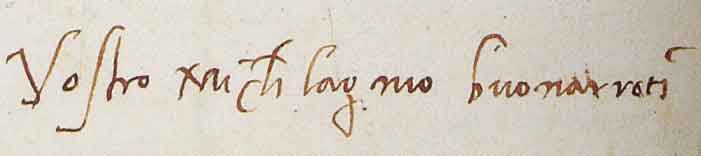 Vostro Michelagnio buonarroti